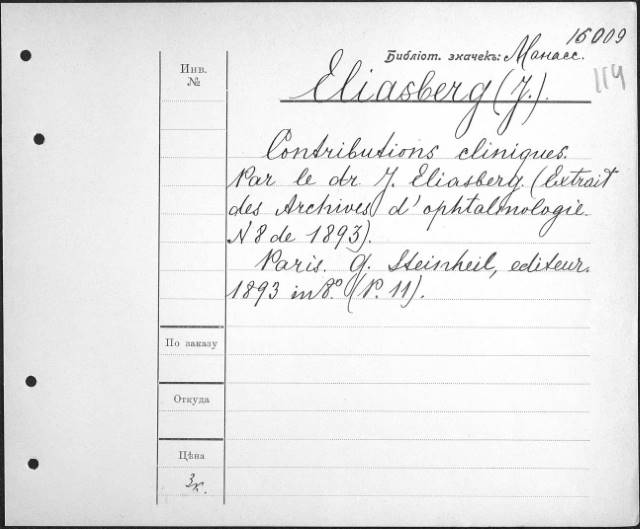 16009
Библіот. значекъ: Манасс.
114
Инв.
№
Eliasberg (J.)
Contributions cliniques.
Par le dr J. Eliasberg. (Extrait
des Archives d'ophtalmologie.
N 8 de 1893).
Paris. G. Steinheil, editeur.
1893 in 8º. (P. 11).
По заказу
Откуда
Цѣна
3к.